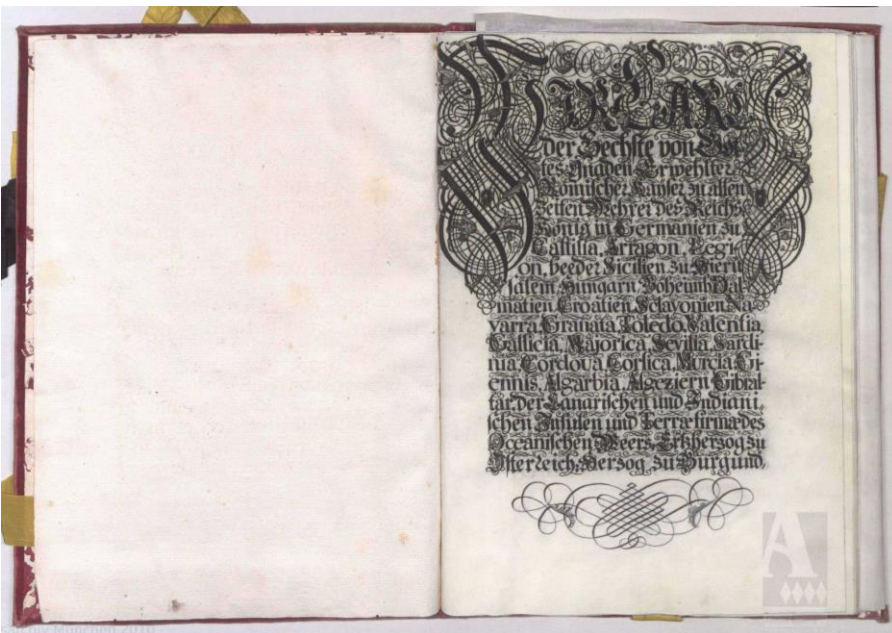 WIR CARL
der Sechste von Got
tes Gnaden Erwehlter
Römischer Kayser zu allen
Zeiten Mehrer des Reichs
König in Germanien zu
Castilia, Arragon, Legi-
on, beeder Sicilien zu Hieru
salem Hungarn Boheimb Dal-
matien Croatien, Sclavonien Na-
varra, Granata, Toledo, Valentia,
Gallicia, Majorica, Sevilia, Sardi-
nia, Cordova, Corsica, Murcia, Gi-
ennis, Algarbia, Algeziern, Gibral-
tar, der Canarischen und Indiani,
schen Insulen und Terræ firmæ des
Oceanischen Meers, Ertzherzog zu
Österreich, Herzog zu Burgund,
A
München 2010